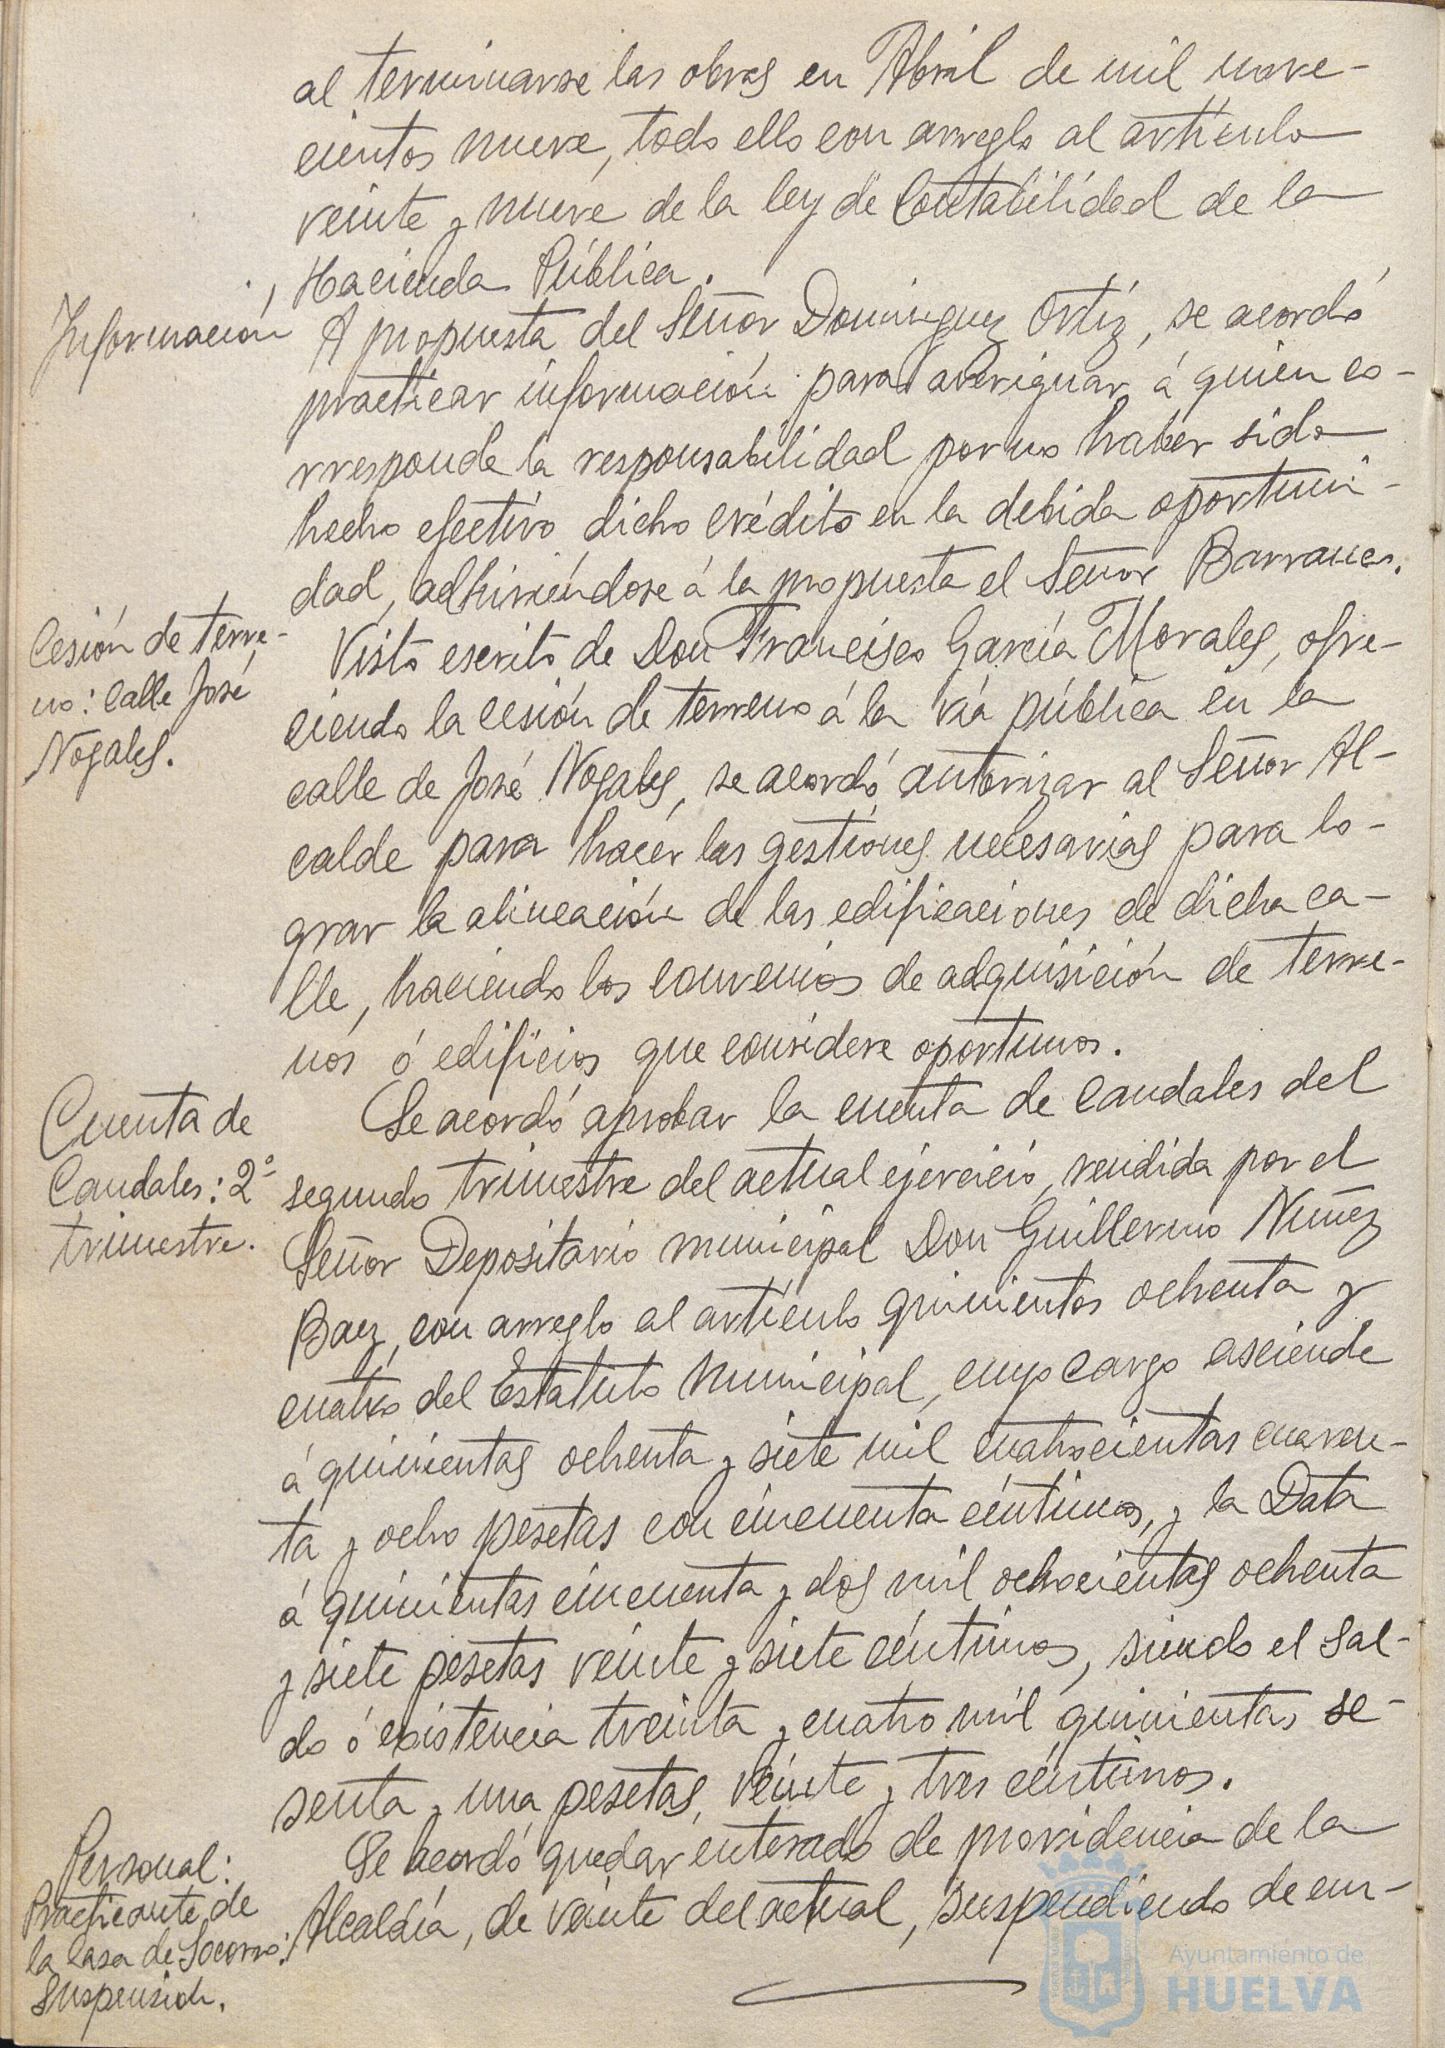 al terminarse las obras en Abril de mil nove-
cientos nueve, todo ello con arreglo al artículo
veinte y nueve de la ley de Contabilidad de la
Hacienda Pública.
Información
A propuesta del Señor Dominguez Ortíz, se acordó
practicar información para averiguar á quien co-
rresponde la responsabilidad por no haber sido
hecho efectivo dicho crédito en la debida oportuni-
dad, adhiriéndose á la propuesta el Señor Barranco.
Cesión de terre-
no: calle José
Nogales.
Visto escrito de Don Francisco García Morales, ofre-
ciendo la cesión de terreno á la vía pública en la
calle de José Nogales, se acordó autorizar al Señor Al-
calde para hacer las gestiones necesarias para lo-
grar la alineación de las edificaciones de dicha ca-
lle, haciendo los convenios de adquisición de terre-
nos ó edificios que considere oportunos.
Cuenta de
Caudales: 2º
trimestre.
Se acordó aprobar la cuenta de caudales del
segundo trimestre del actual ejercicio, rendida por el
Señor Depositario municipal Don Guillermo Nuñez
Baez, con arreglo al artículo quinientos ochenta y
cuatro del Estatuto Municipal, cuyo cargo asciende
á quinientas ochenta y siete mil cuatrocientas cuaren-
ta y ocho pesetas con cincuenta céntimos, y la Data
á quinientas cincuenta y dos mil ochocientas ochenta
y siete pesetas veinte y siete céntimos, siendo el sal-
do ó existencia treinta y cuatro mil quinientas se-
senta y una pesetas, veinte y tres céntimos.
Personal:
Practicante de
la Casa de Socorro:
Suspensión.
Se acordó quedar enterado de providencia de la
Alcaldía, de veinte del actual, suspendiendo de em-
Ayuntamiento de
HUELVA